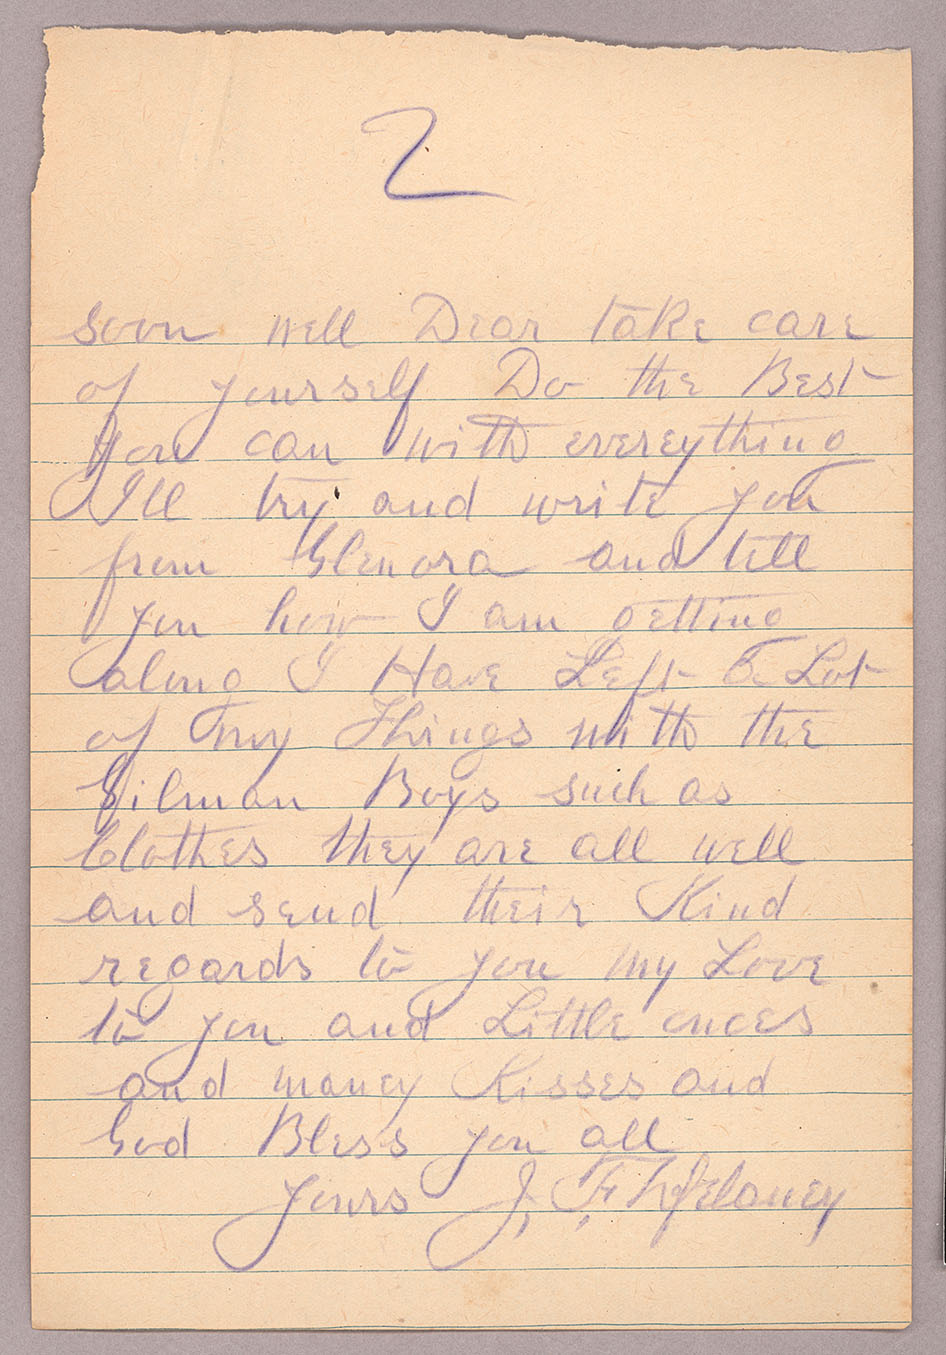 2
soon well Dear take care
of yourself Do the Best
you can with evereything
I'll try and write you
from Glenora and tell
you how I am getting
along I Have Left a Lot
of my Things with the
Gilman Boys such as
Clothes they are all well
and send their Kind
regards to you my Love
to you and Little onces
and maney Kisses and
God Bless you all
Yours J, F,